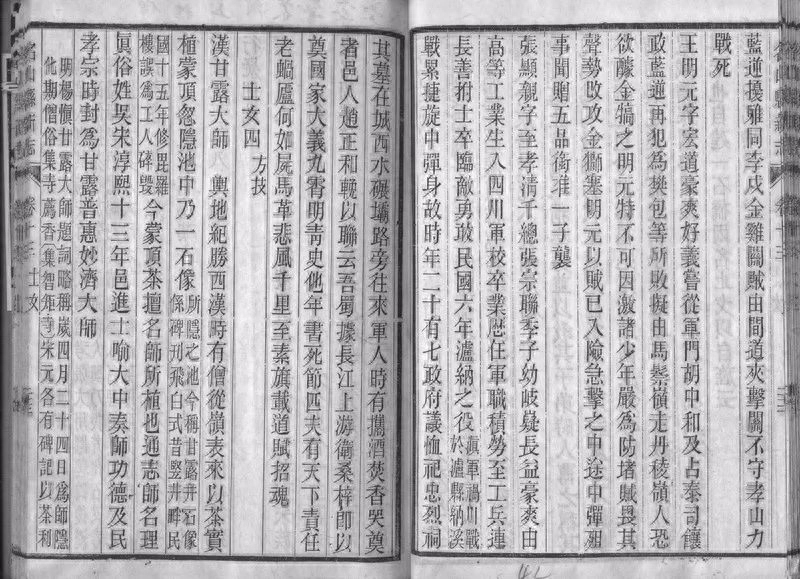 藍逆擾雅同李戌金雞關賊由間道夾擊關不守孝山力
戰死
王明元字宏道豪爽好義嘗從軍門胡中和及占泰司饟
政藍逆再犯為樊包等所敗擬由馬鬃嶺走丹稜嶺人恐
欲醵金犒之明元特不可因激諸少年嚴為防堵賊畏其
聲勢改攻金獅塞明元以賊已入險急擊之中途中彈殂
事聞贈五品銜准一子襲
張顯親字至孝清千總張宗聯季子幼岐嶷長益豪爽由
高等工業生入四川軍校卒業歷任軍職積勞至工兵連
長善拊士卒臨敵勇敢民國六年瀘納之役滇軍禍川戰於瀘縣納溪
戰累捷旋中彈身故時年二十有七政府議恤祀忠烈祠
其墓在城西水碾壩路旁往來軍人時有攜酒焚香哭奠
者邑人趙正和輓以聯云吾蜀據長江上游衛桑梓即以
奠國家大義九霄明青史他年書死節匹夫有天下責任
老蝸廬何如屍馬革悲風千里至素旗載道賦招魂
士女四 方技
漢甘露大師 輿地紀勝西漢時有僧從嶺表來以茶實
植蒙頂忽隱池中乃一石像所隱之池今稱甘露井石像係碑刊飛白式昔豎井畔民
國十五年修毘羅樓誤為工人碑毀今蒙頂茶擅名師所植也通志師名理
眞俗姓吳宋淳熙十三年邑進士喻大中奏師功德及民
孝宗時封為甘露普惠妙濟大師
明楊愼甘露大師題詞略稱歲四月二十四日為師隱
化期僧俗集寺薦香(集智矩寺)宋元各有碑記以茶利
名山縣新志 卷十三 士女